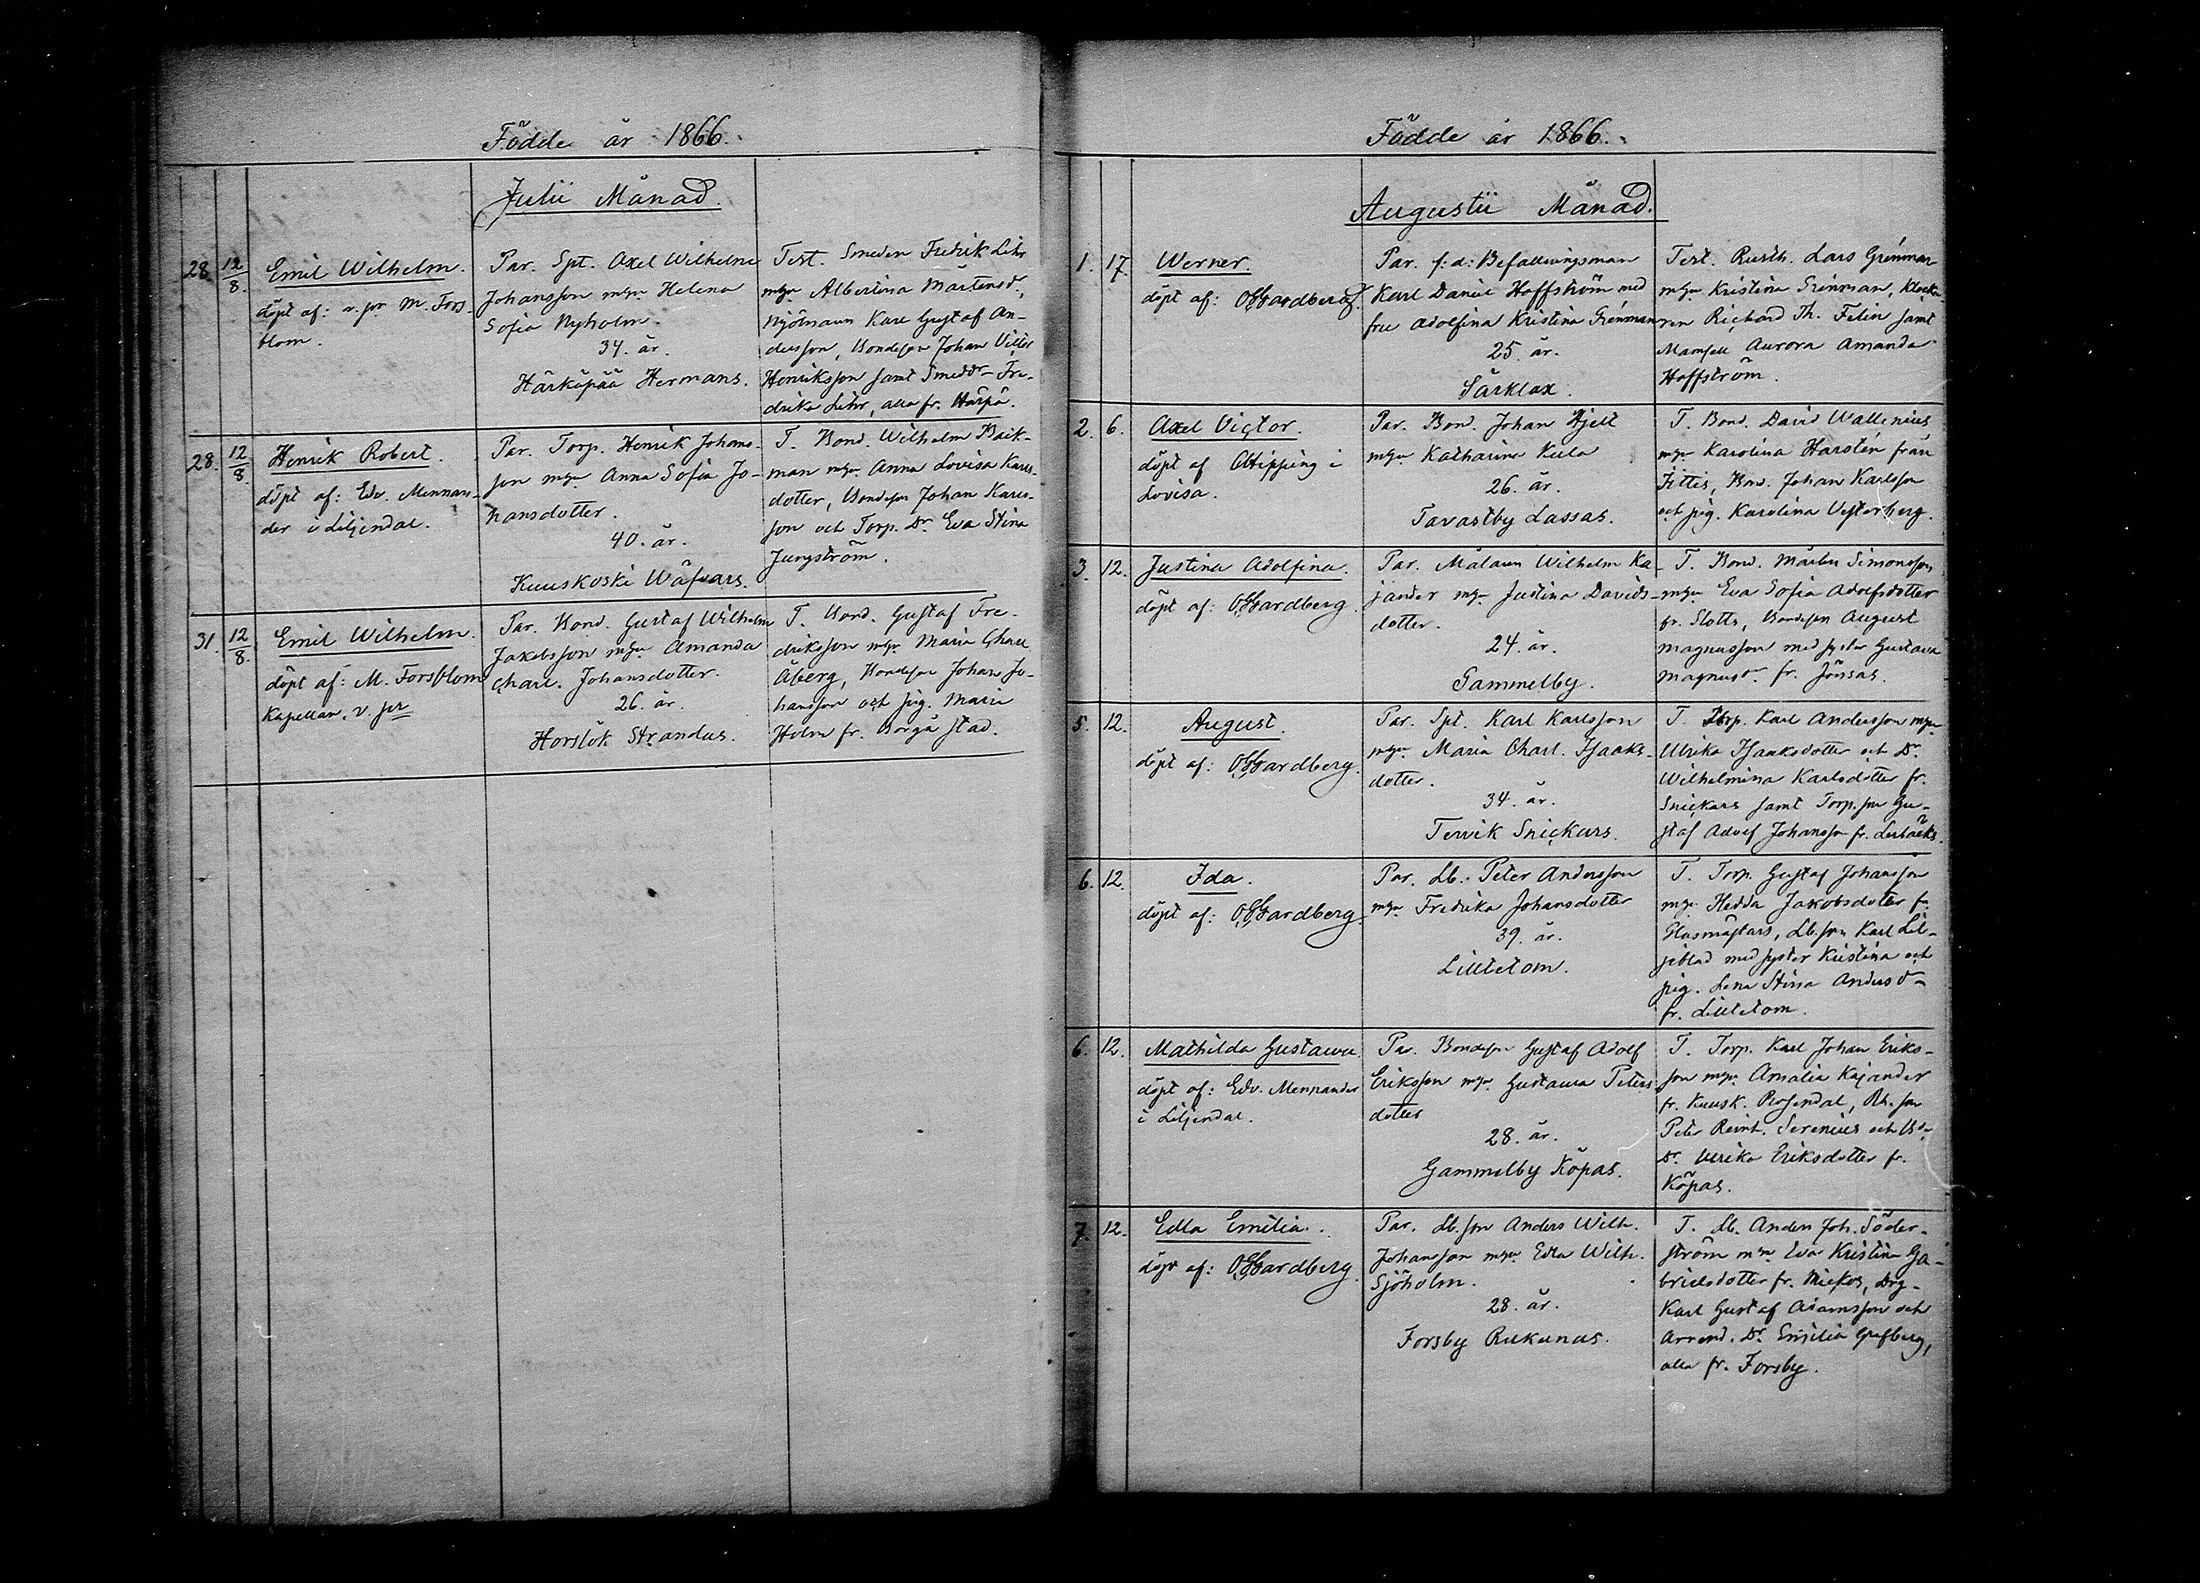 Födde år 1866.
Julii Månad.
28. 12/8. Emil Wilhelm.
döpt af: v. pr M. Fors-
blom.
Par. Spt. Axel Wilhelm
Johansson m hu Helena
Sofia Nyholm.
34. år.
Härköpää Hermans.
Test. Smeden Fredrik Lihr
m hu Albertina Mårtensdr,
Mjölnaren Karl Gustaf An-
dersson, Bondeson Johan Victor
Henriksson samt Smeddr Fre-
drika Lihr, alla fr. Härpä.
28. 12/8 Henrik Robert.
döpt af: Edv. Mennan-
der i Liljendal.
Par. Torp. Henrik Johans-
son m hu Anna Sofia Jo-
hansdotter.
40. år.
Kuuskoski Wäfvars.
T. Bond. Wilhelm Bäck-
man m hu Anna Lovisa Karls-
dotter, Bondeson Johan Karls-
son och Torp. Dr Eva Stina
Jungström.
31. 12/8. Emil Wilhelm.
döpt af: M. Forsblom
Kapellan, v. pr
Par. Bond. Gustaf Wilhelm
Jakobsson m hu Amanda
Charl. Johansdotter.
26. år.
Horslök Strandas.
T. Bond. Gustaf Fre-
driksson m hu Maria Charl
Åberg, Bondeson Johan Jo-
hansson och pig. Maria
Holm fr. Borgå stad.
Födde år 1866.
Augustii Månad.
1. 17. Werner.
döpt af: O Gardberg.
Par. f: d: Befallningsman
Karl Daniel Hoffström med
fru Adolfina Kristina Grénman
25. år.
Särklax.
Test. Rusth. Lars Grénman
m hu Kristina Grénman, Klocka-
ren Richard Th. Felin samt
Mamsell Aurora Amanda
Hoffström.
2. 6. Axel Victor.
döpt af Hipping i
Lovisa.
Par. Bond. Johan Hjelt
m hu Katharina Kula
26. år.
Tavastby Lassas.
T. Bond. David Wallenius
m hu Karolina Harstén från
Pittis, Bond. Johan Karlsson
och pig. Karolina Vesterberg.
3. 12. Justina Adolfina.
döpt af: O Gardberg.
Par. Målaren Wilhelm Ka-
jander m hu Justina Davids-
dotter.
24. år.
Gammelby.
T. Bond. Mårten Simonsson
m hu Eva Sofia Adolfsdotter
fr. Slotts, Bondeson August
Magnusson med syster Gustava
Magnusdr fr. Jönsas.
5. 12. August.
döpt af: O Gardberg.
Par. Spt. Karl Karlsson
m hu Maria Charl. Isaaks-
dotter.
34. år.
Tervik Snickars.
T. Torp. Karl Andersson m hu
Ulrika Isaaksdotter och Dr
Wilhelmina Karlsdotter fr.
Snickars samt Torp. son Gu-
staf Adolf Johansson fr. Lerbäcks.
6. 12. Ida.
döpt af: O Gardberg.
Par. Lb. Peter Andersson
m hu Fredrika Johansdotter
39. år.
Lilltetom.
T. Torp. Gustaf Johansson
m hu Hedda Jakobsdotter fr.
Glasmästars, Lb. son Karl Lil-
jeblad med syster Kristina och
pig. Lena Stina Andersdr
fr. Lilltetom.
6. 12. Mathilda Gustawa.
döpt af: Edv. Mennander
i Liljendal.
Par. Bondeson Gustaf Adolf
Eriksson m hu Gustava Peters
dotter
28. år.
Gammelby Köpas.
T. Torp. Karl Johan Eriks-
son m hu Amalia Kajander
fr. Kuusk. Rosendal, Rh. son
Peter Reinh. Serenius och Bd.
Dr. Ulrika Eriksdotter fr.
Köpas.
7. 12. Edla Emilia.
döpt af: O Gardberg.
Par. Lb. son Anders Wilh.
Johansson m hu Edla Wilh.
Sjöholm.
28. år.
Forsby Rukunas.
T. Lb. Anders Joh. Söder-
ström m hu Eva Kristina Ga-
brielsdotter fr. Mickos, Drg
Karl Gustaf Adamsson och
Arrend. Dr. Emilia Grefberg,
alla fr. Forsby.